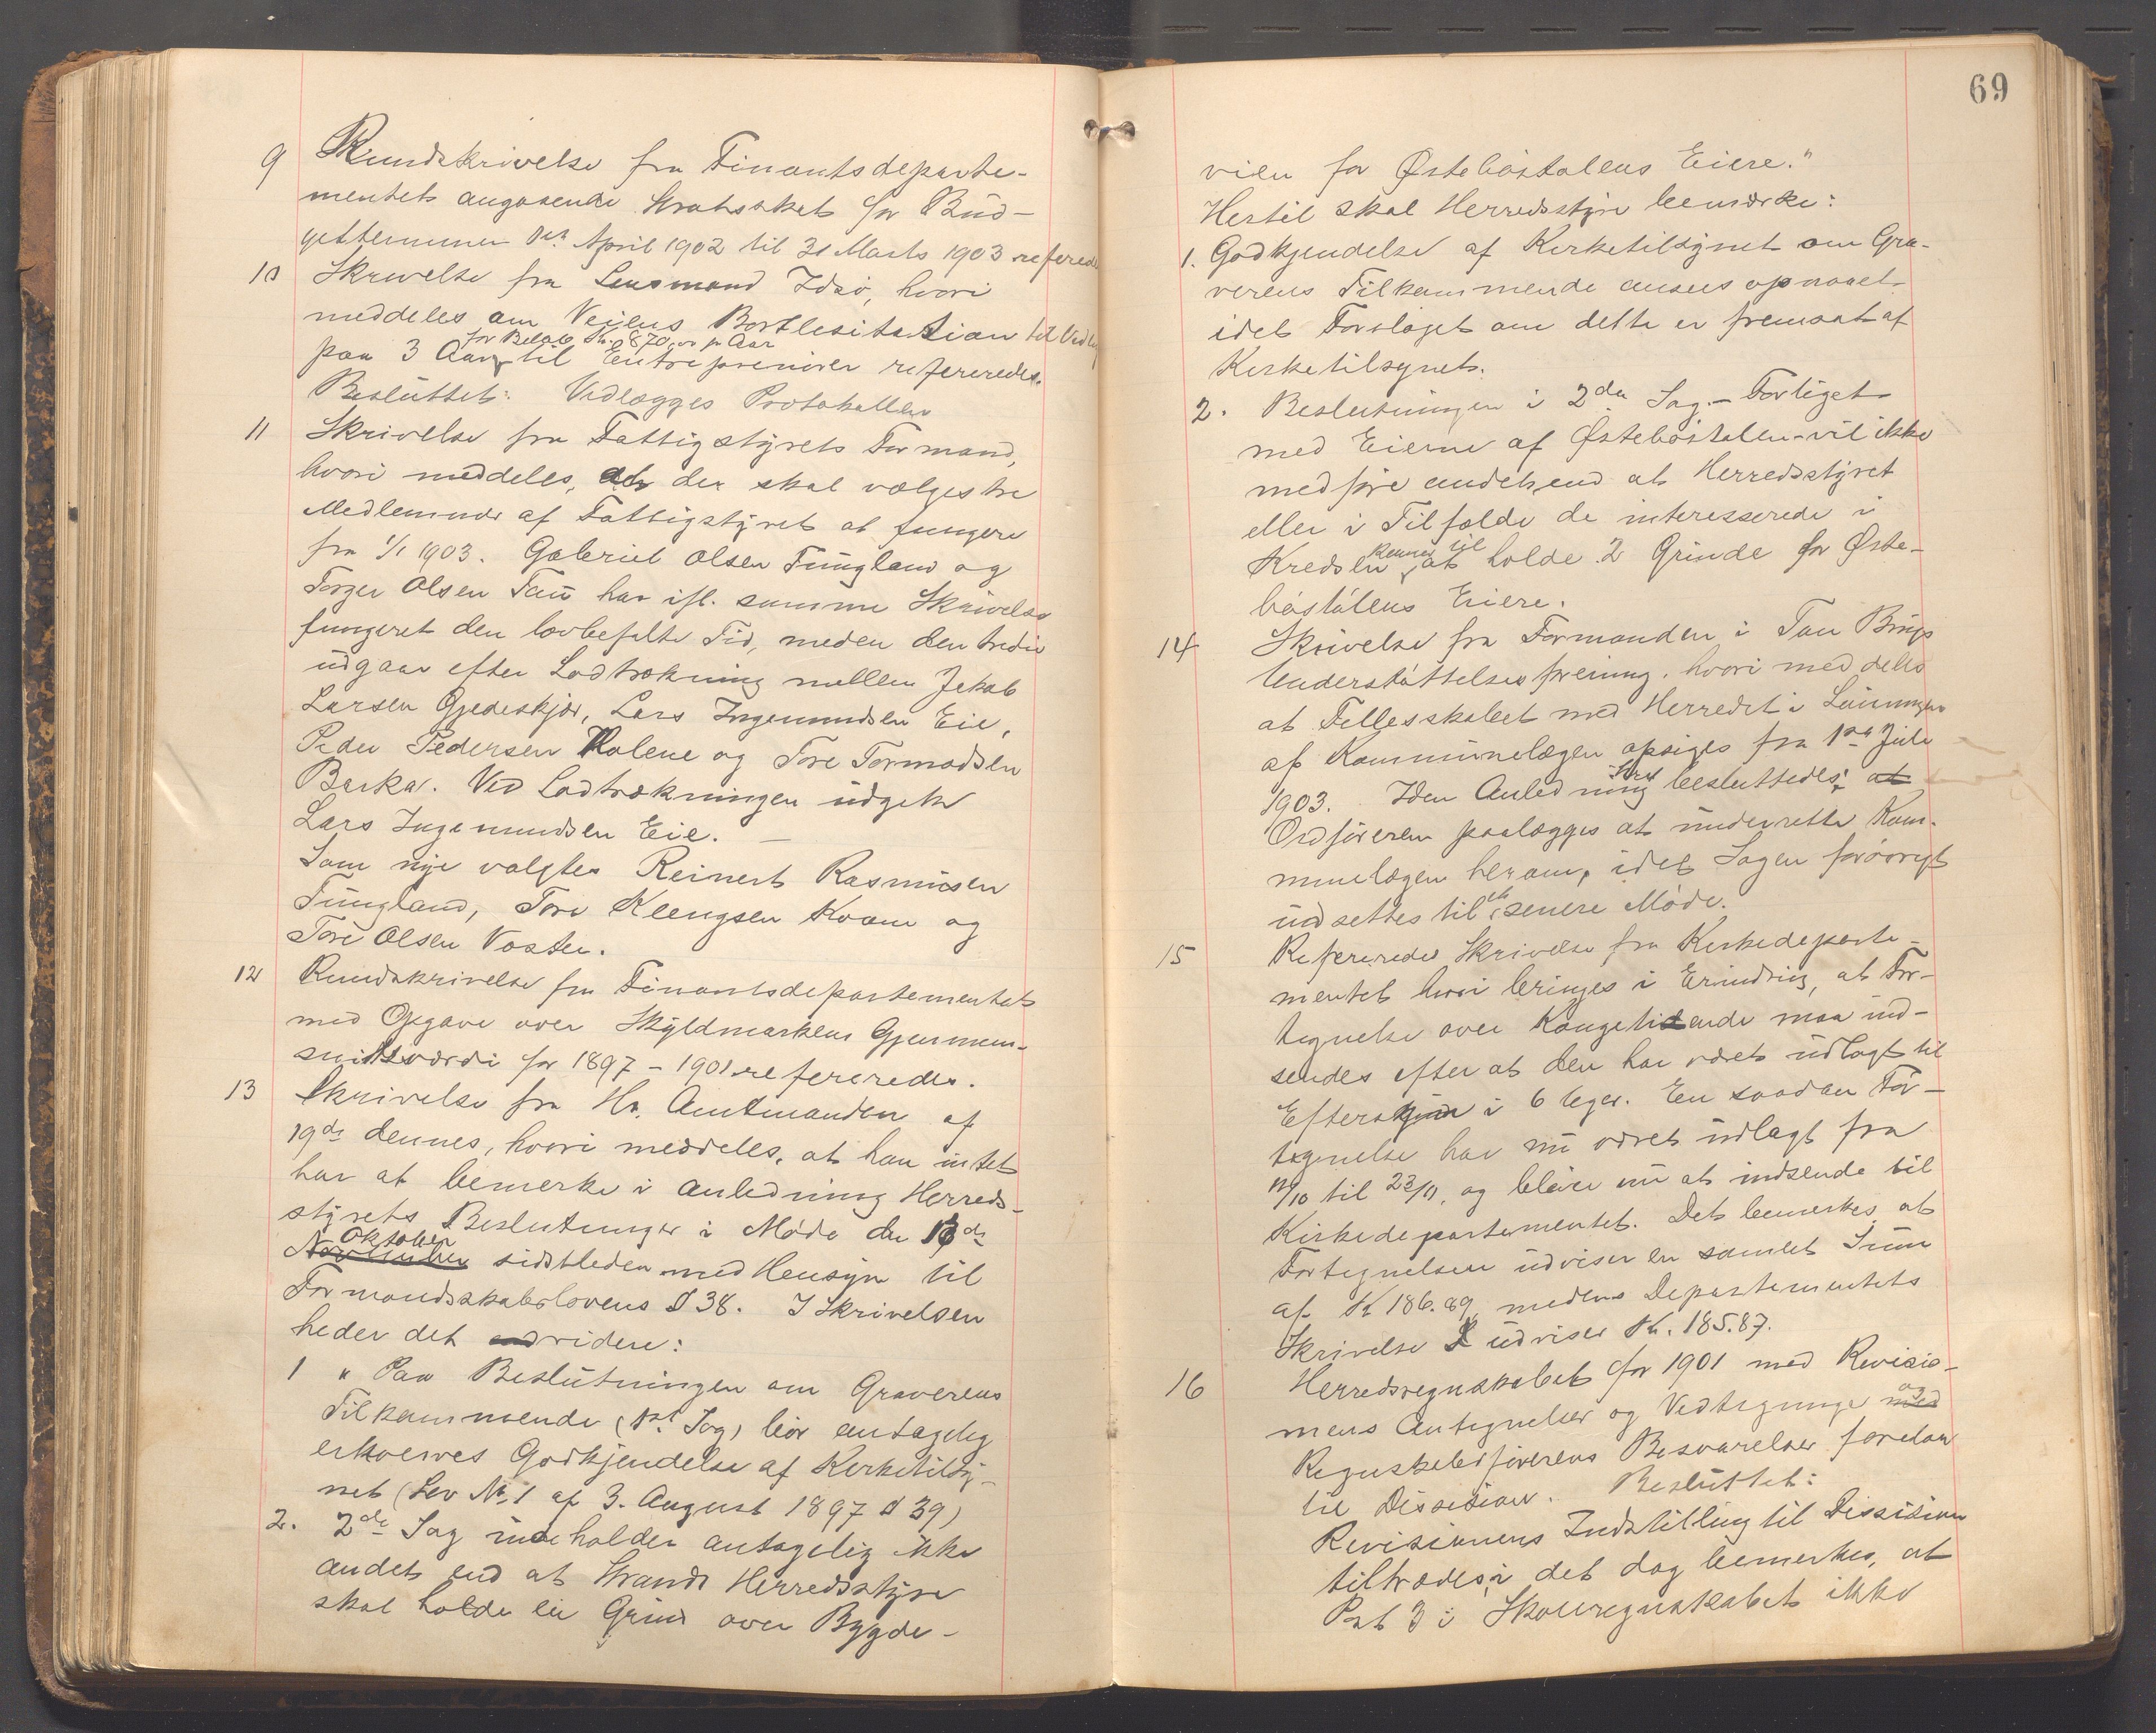 9 Rundskrivelse fra Finantsdeparte-
mentet angaaende Statsskat for Bud-
getterminen 1ste April 1902 til 31 Marts 1903 refereredes
10 Skrivelse fra Lensmand Idsø, hvori
meddeles om Veiens Bortlicitation til Vedlig
for Beløb Kr. 870,00 pr Aar
paa 3 Aar til Entreprenører refereredes.
Besluttet: Vedlægges Protokollen
11 Skrivelse fra Fattigstyrets Formand,
hvori meddeles, at der skal vælges tre
Medlemmer af Fattigstyret at fungere
fra 1/1 1903. Gabriel Olsen Fiungland og
Torger Olsen Tau har ifl. samme Skrivelse
fungeret den lovbefalte Tid, meden den tredie
udgaar efter Lodtrækning mellem Jakob
Larsen Gjedeskjær, Lars Ingemundsen Eie,
Peder Pedersen Holene og Tore Tormodsen
Barka. Ved Lodtrækningen udgik
Lars Ingemundsen Eie. —
Som nye valgtes Reinert Rasmusen
Fiungland, Tore Klengsen Kvam og
Tore Olsen Voster.
12 Rundskrivelse fra Finantsdepartementet
med Opgave over Skyldmarkens Gjennem-
snitsværdi for 1897 - 1901 refereredes.
13 Skrivelse fra Hr. Amtmanden af
19de dennes, hvori meddeles, at han intet
har at bemerke i Anledning Herreds-
styrets Beslutninger i Møde den 16de
Oktober
November sidstleden med Hensyn til
Formandsskabslovens § 38. I Skrivelsen
heder det videre:
1 "Paa Beslutningen om Graverens
Tilkommende (1ste Sag) bør antagelig
erhverves Godkjendelse af Kirketilsy-
net (Lov No. 1 af 3. August 1897 § 39)
2. 2de Sag indeholder antagelig ikke
andet end at Strands Herredsstyre
skal holde en Grind over Bygde-
69
vien for Østebøstølens Eiere."
Hertil skal Herredsstyre bemærke:
1. Godkjendelse af Kirketilsynet om Gra-
verens Tilkommende ansees opnaaet
idet Forslaget om dette er fremsat af
Kirketilsynet.
2. Beslutningen i 2den Sag - Forliget
med Eierne af Østebøstølen - vil ikke
medføre andet end at Herredsstyret
eller i Tilfælde de interesserede i
kommer til
Kredsen at holde 2 Grinde for Øste-
bøstølens Eiere.
14 Skrivelse fra Formanden i Tau Brugs
Understøttelsesforening, hvori meddeles
at Fellesskabet med Herredet i Lønningen
af Kommunelægen opsiges fra 1ste Juli
1903. I den Anledning besluttedes: at
Ordføreren paalægges at underrette Kom-
munelægen herom, idet Sagen forøvrigt
et
udsettes til senere Møde.
15 Refereredes Skrivelse fra Kirkedeparte-
mentet hvori bringes i Erindring, at For-
tegnelse over Kongetiende maa ind-
sendes efter at den har været udlagt til
Eftersyn i 6 Uger. En saadan For-
tegnelse har nu været udlagt fra
12/10 til 23/11, og bliver nu at indsende til
Kirkedepartementet. Det bemerkes, at
Fortegnelsen udviser en samlet Sum
af Kr 186.89, medens Departementets
Skrivelse udviser Kr. 185.87.
16 Herredsregnskabet for 1901 med Revisio-
nens Antegnelser og Vedtegninge med
og
Regnskabsførerens Besvarelser forelaa
til Dissision. Besluttet:
Revisionens Indstilling til Dissision
tiltrædes, i det dog bemerkes, at
Post 3 i Skoleregnskabet ikke